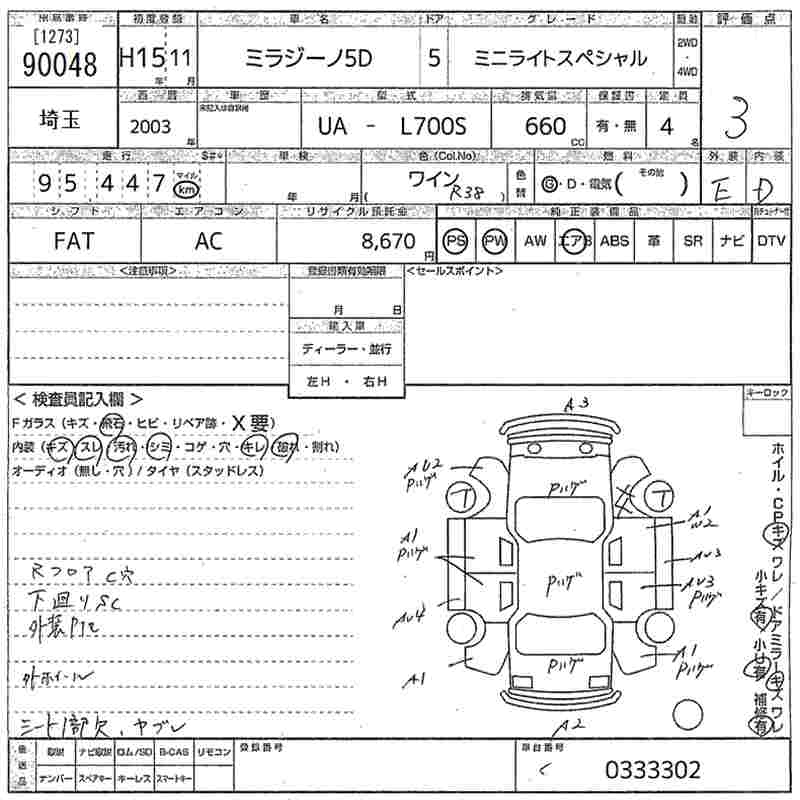 出品番号 初度登録 車名 ドア グレード 駆動 評価点
[1273]
90048 H15年 11月 ミラジーノ5D 5 ミニライトスペシャル 2WD・4WD
埼玉 西暦 車歴 型式 排気量 保証書 定員
2003年 UA - L700S 660cc 有・無 4名 3
走行 車検 色(Col.No) 燃料 外装 内装
95,447 マイル km 年 月 ワイン R38 色替 G・D・電気( その他 ) E D
シフト エアコン リサイクル預託金 純正装備品
FAT AC 8,670円 PS PW AW エアB ABS 革 SR ナビ DTV
<注意事項> 登録書類有効期限 <セールスポイント>
月 日
輸入車
ディーラー・並行
左H・右H
<検査員記入欄> キーロック
Fガラス(キズ・飛石・ヒビ・リペア跡・X要)
内装(キズ・スレ・汚れ・シミ・コゲ・穴・キレ・割れ)
オーディオ(無し・穴)/タイヤ(スタッドレス)
A3
AU2 Pハゲ
Pハゲ
A1 W2
A1 Pハゲ
AU3
Pハゲ
AU3 Pハゲ
AU4
A1
Pハゲ
A1 Pハゲ
A2
ホイル・CPキズワレ/ドアミラーキズワレ
小キズ有 小U有 補修有
Rフロア C穴
下廻りSC
外ホイール
シート1部欠、ヤブレ
後送品 取説 ナビ取説 ロム/SD B-CAS リモコン 登録番号 車台番号
ナンバー スペアキー キーレス スマートキー 0333302